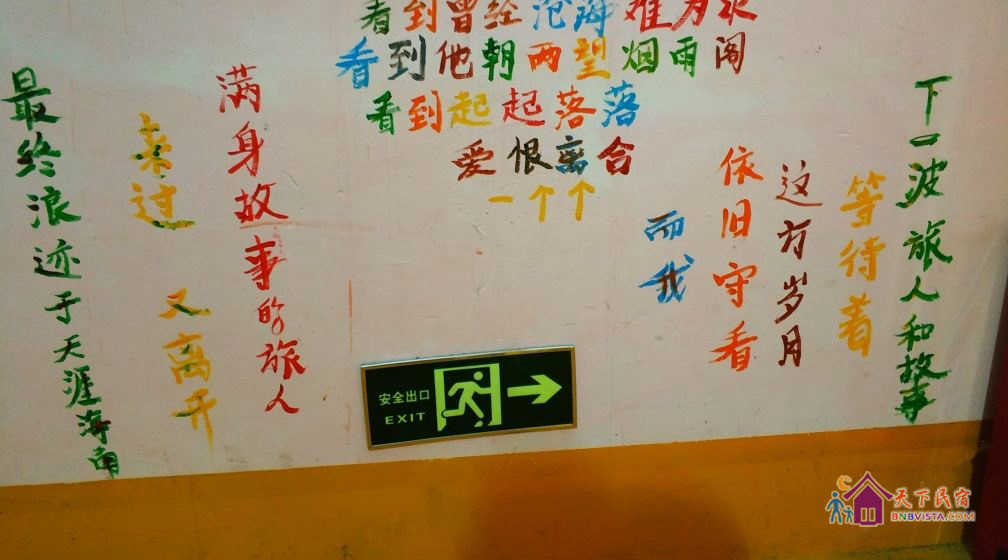 看到曾经沧海难为水
看到他朝两望烟雨阁
看到起起落落
爱恨离合
一个个
满身故事的旅人
来过
又离开
最终浪迹于天涯海角
而我
依旧守看
这方岁月
等待着
下一波旅人和故事
安全出口
EXIT
天下民宿
BNBVISTA.COM